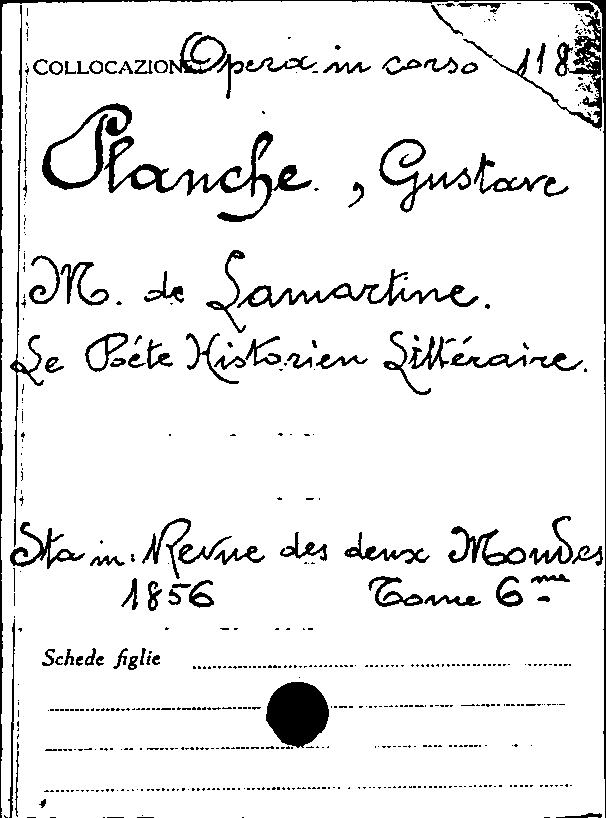 COLLOCAZIONE Opera in corso 118
Planche, Gustave
M. de Lamartine.
Le Poéte Historien Littéraire.
Sta in: Revue des deux Mondes
1856 Tome 6me
Schede figlie